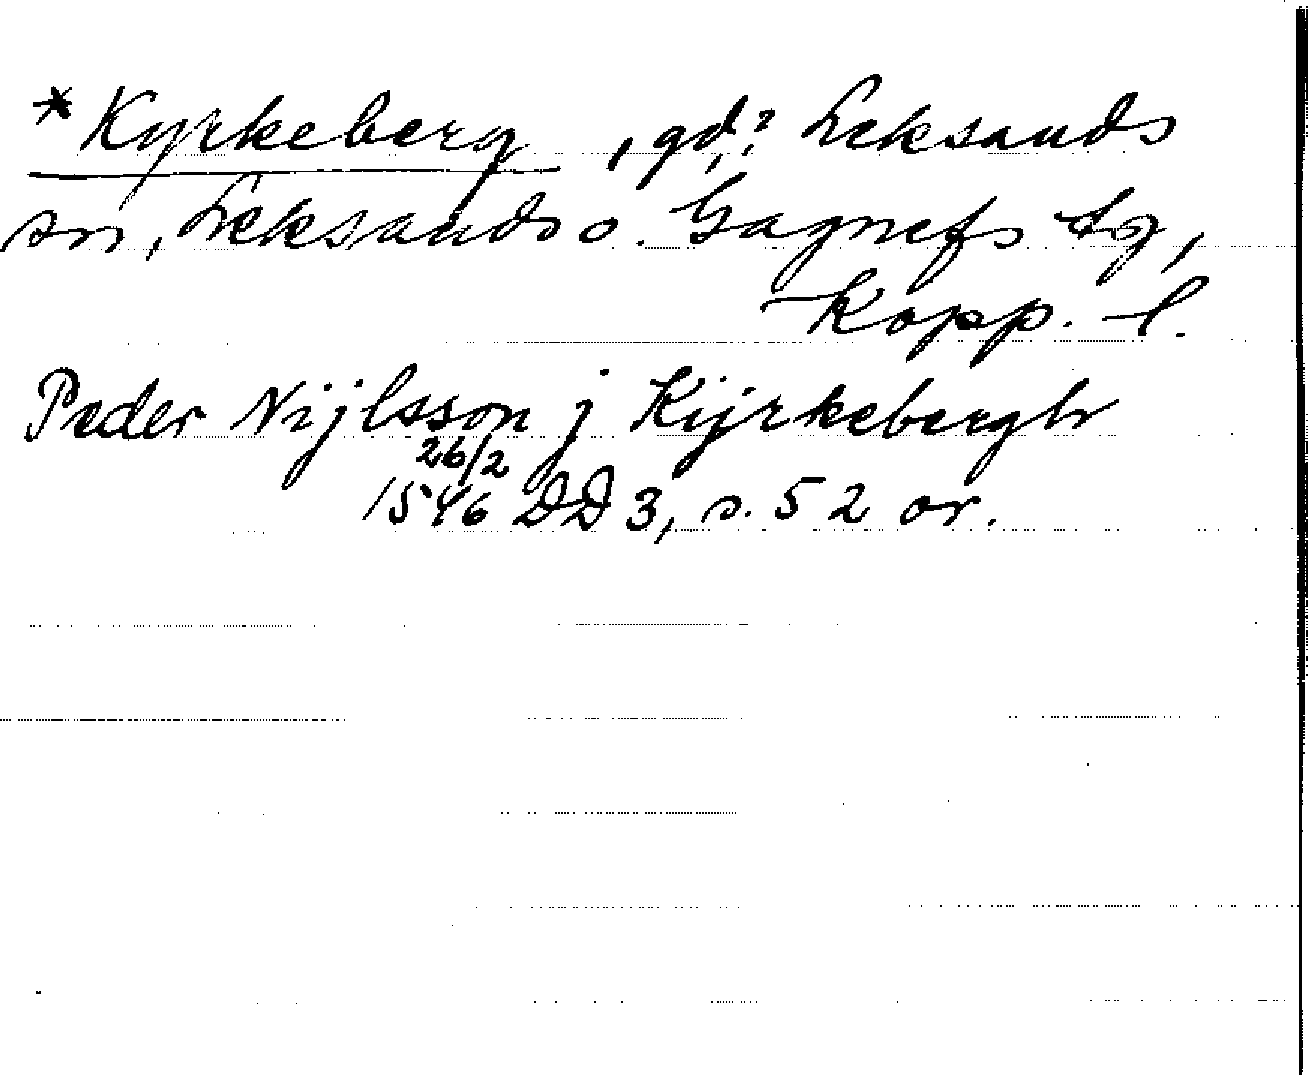 *Kyrkeberg, gd? Leksands
sn, Leksands o. Gagnefs tg,
Kopp. l.
Peder Nijlsson j Kijrkebergh
26/2
1546 DD 3, s. 52 or.